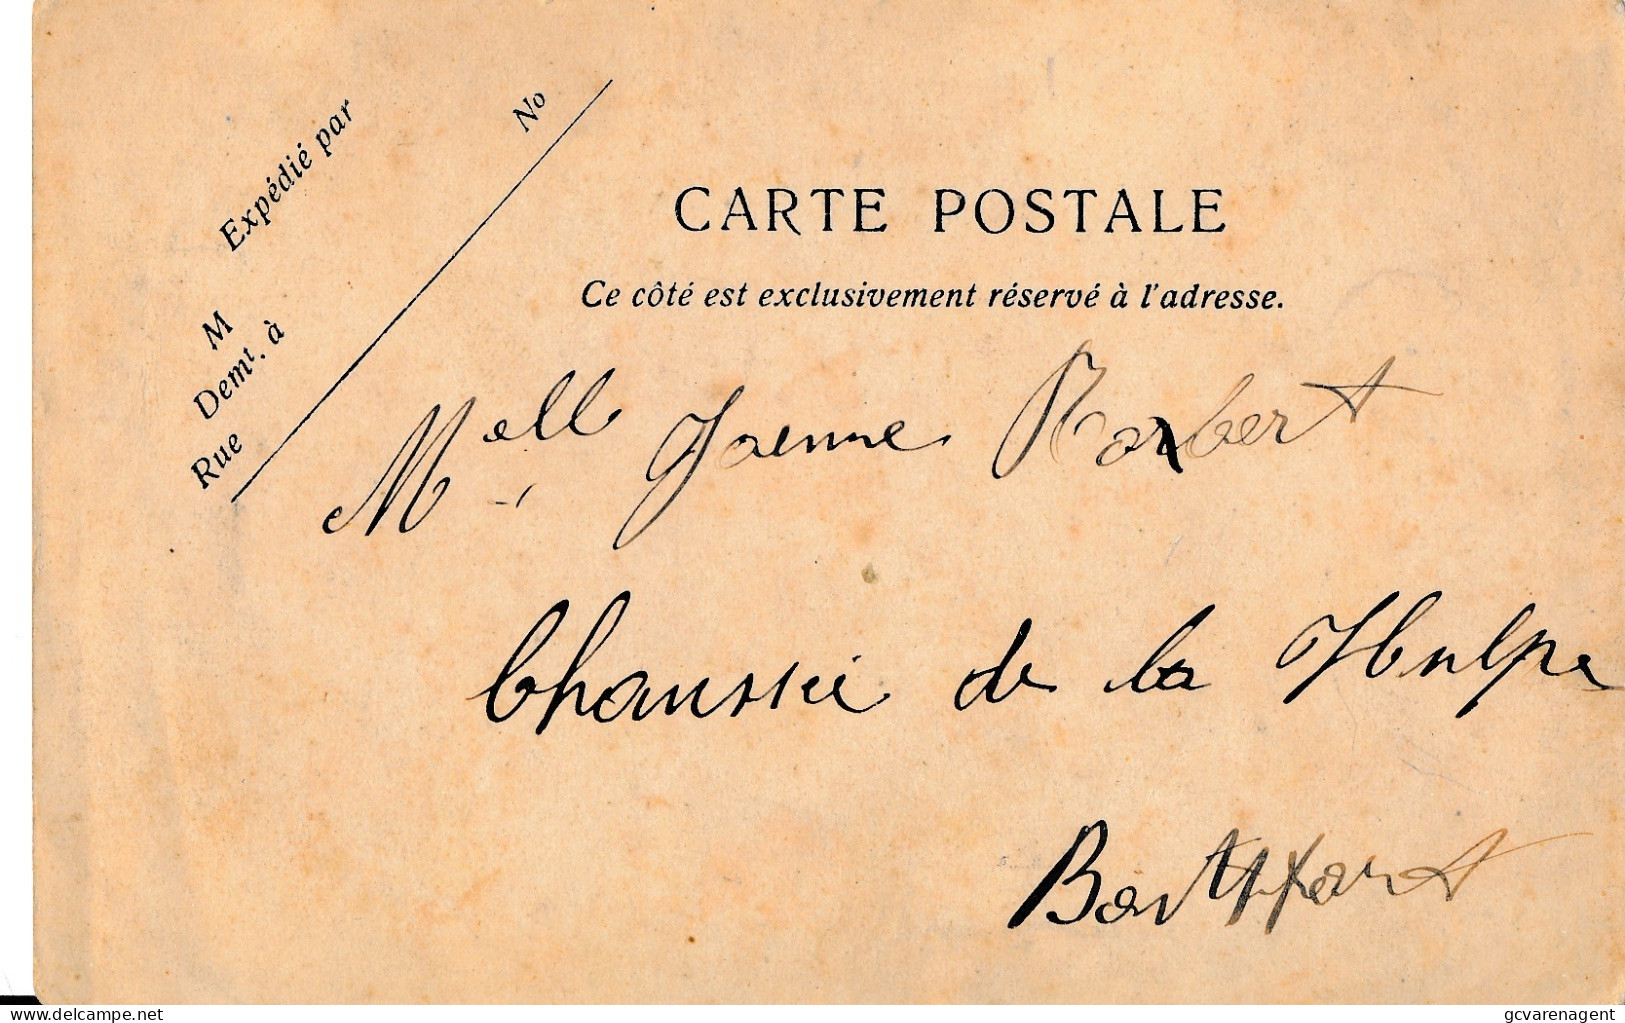 Expédié par
M No
Demt. à
Rue
CARTE POSTALE
Ce côté est exclusivement réservé à l'adresse.
Melle Jeanne
Chaussée de la Hulpe
delcampe.net
gcvarenagent